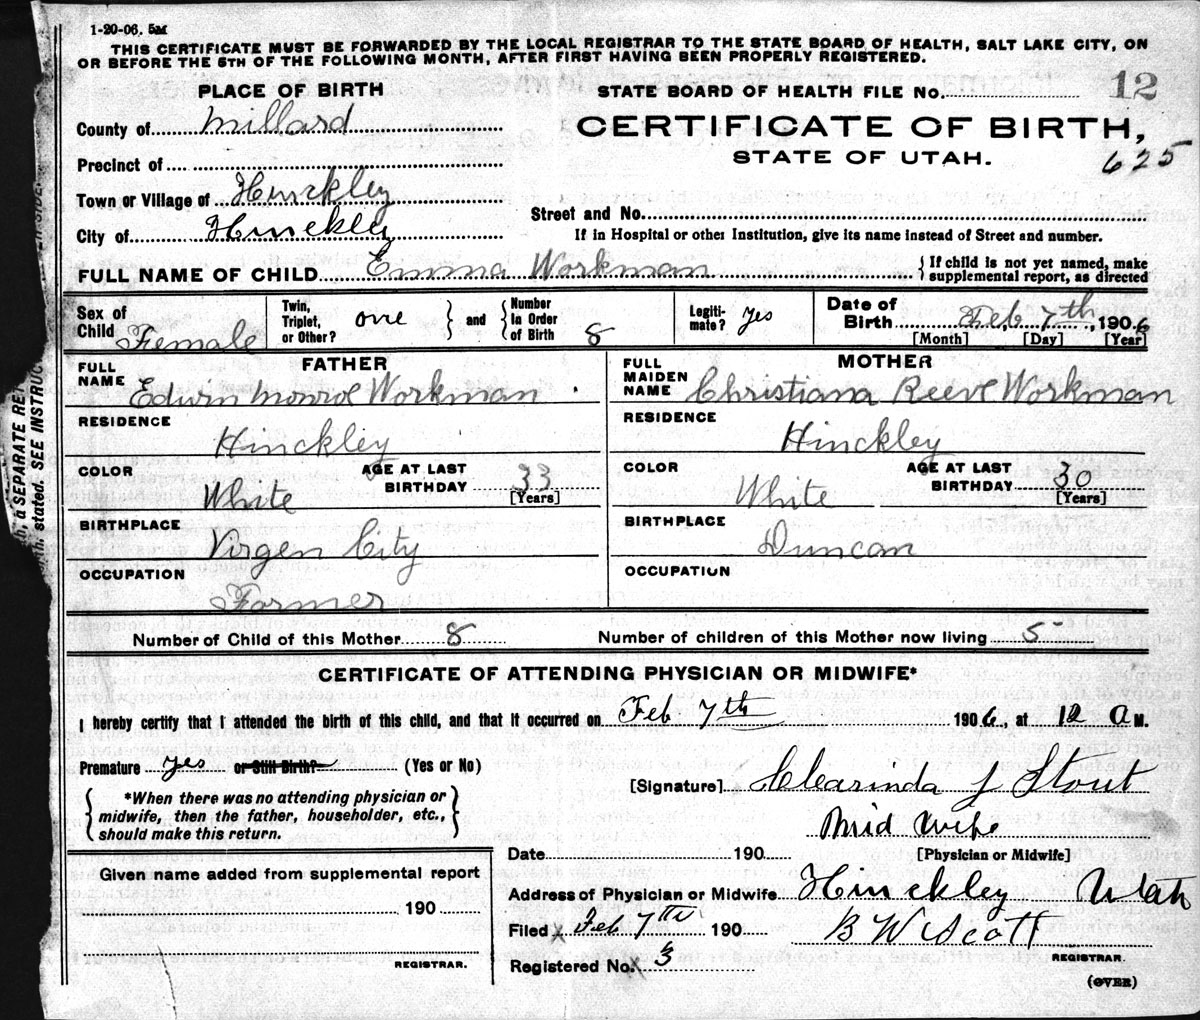 1-20-06. 5M
THIS CERTIFICATE MUST BE FORWARDED BY THE LOCAL REGISTRAR TO THE STATE BOARD OF HEALTH, SALT LAKE CITY, ON
OR BEFORE THE 5TH OF THE FOLLOWING MONTH, AFTER FIRST HAVING BEEN PROPERLY REGISTERED.
PLACE OF BIRTH
STATE BOARD OF HEALTH FILE No. 12
County of Millard
CERTIFICATE OF BIRTH,
STATE OF UTAH.
625
Precinct of
Town or Village of Hinckley
City of Hinckley
Street and No.
If in Hospital or other Institution, give its name instead of Street and number.
FULL NAME OF CHILD Emma Workman { If child is not yet named, make supplemental report, as directed
Sex of Child Female Twin, Triplet, or Other? one } and { Number in Order of Birth 8 Legiti-mate? yes Date of Birth Feb 7th, 1906
[Month] [Day] [Year]
FATHER
MOTHER
FULL NAME Edwin Monroe Workman
FULL MAIDEN NAME Christiana Reeve Workman
RESIDENCE Hinckley
RESIDENCE Hinckley
COLOR White AGE AT LAST BIRTHDAY 33 [Years]
COLOR White AGE AT LAST BIRTHDAY 30 [Years]
BIRTHPLACE Virgen City
BIRTHPLACE Duncan
OCCUPATION Farmer
OCCUPATION
Number of Child of this Mother 8 Number of children of this Mother now living 5
CERTIFICATE OF ATTENDING PHYSICIAN OR MIDWIFE*
I hereby certify that I attended the birth of this child, and that it occurred on Feb 7th 1906, at 12 a M.
Premature yes or Still Birth? (Yes or No)
[Signature] Clearinda J Stout
{ *When there was no attending physician or }
midwife, then the father, householder, etc.,
should make this return.
Mid Wife
[Physician or Midwife]
Date 190
Given name added from supplemental report
190
REGISTRAR.
Address of Physician or Midwife Hinckley Utah
Filed x Feb 7th 190
B W Scott
REGISTRAR.
Registered No. x 3
(OVER)
a SEPARATE RE
stated. SEE INSTRUC